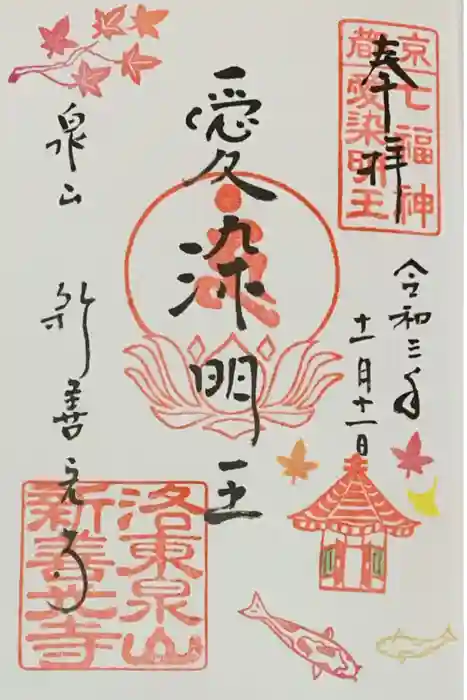 奉拝
京七福神
都愛染明王
令和三年
十一月十一日
愛染明王
泉山
新善光寺
洛東泉山
新善光寺